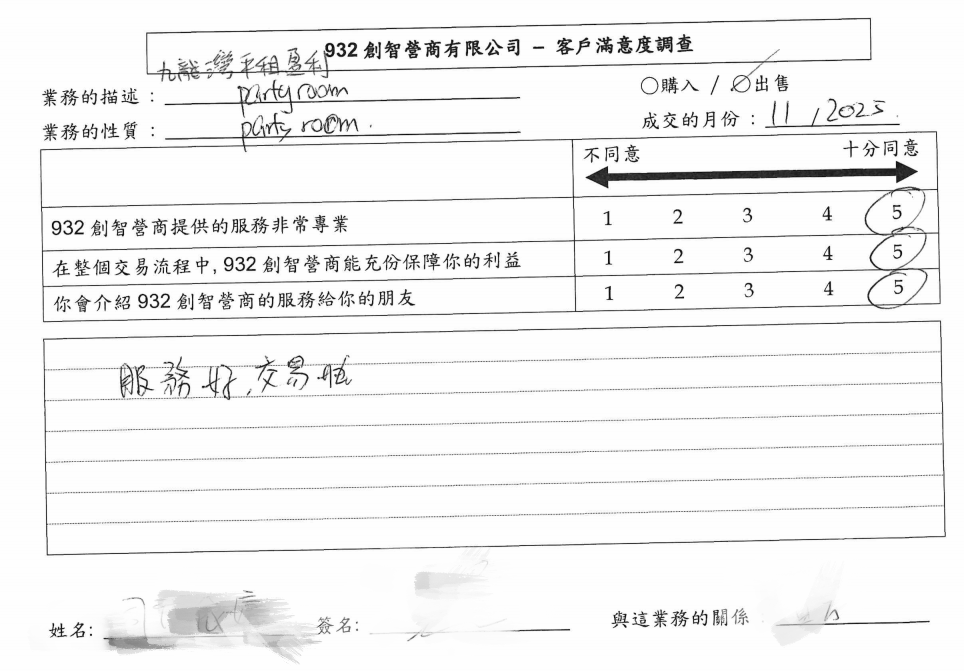 932 創智營商有限公司 – 客戶滿意度調查
九龍灣平租盈利
業務的描述 : party room
○購入 / ○出售
業務的性質 : party room.
成交的月份 : 11 / 2025
不同意 十分同意
932 創智營商提供的服務非常專業 1 2 3 4 5
在整個交易流程中, 932 創智營商能充份保障你的利益 1 2 3 4 5
你會介紹 932 創智營商的服務給你的朋友 1 2 3 4 5
服務好,交易
姓名: 簽名: 與這業務的關係